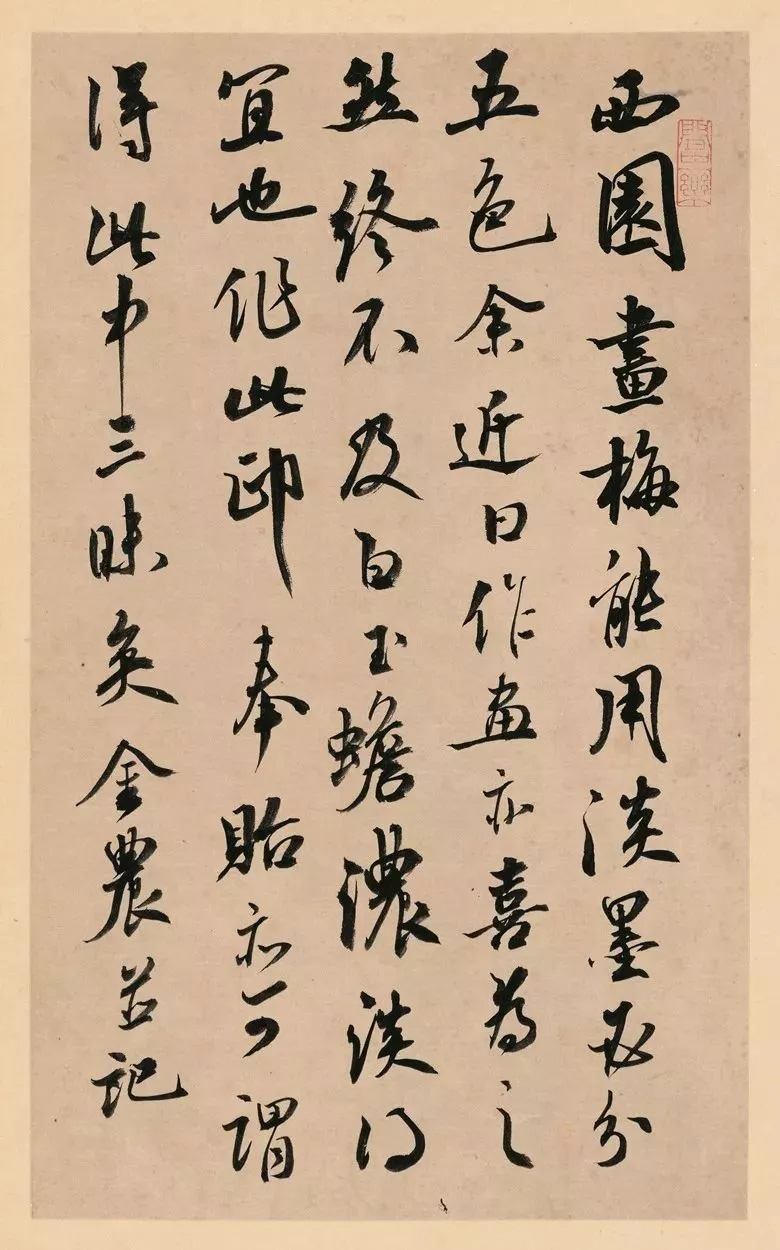 西園畫梅能用淡墨分
五色余近日作画亦喜為之
然終不及白玉蟾濃淡得
宜也作此印奉貽亦可謂
得此中三昧矣金農並記